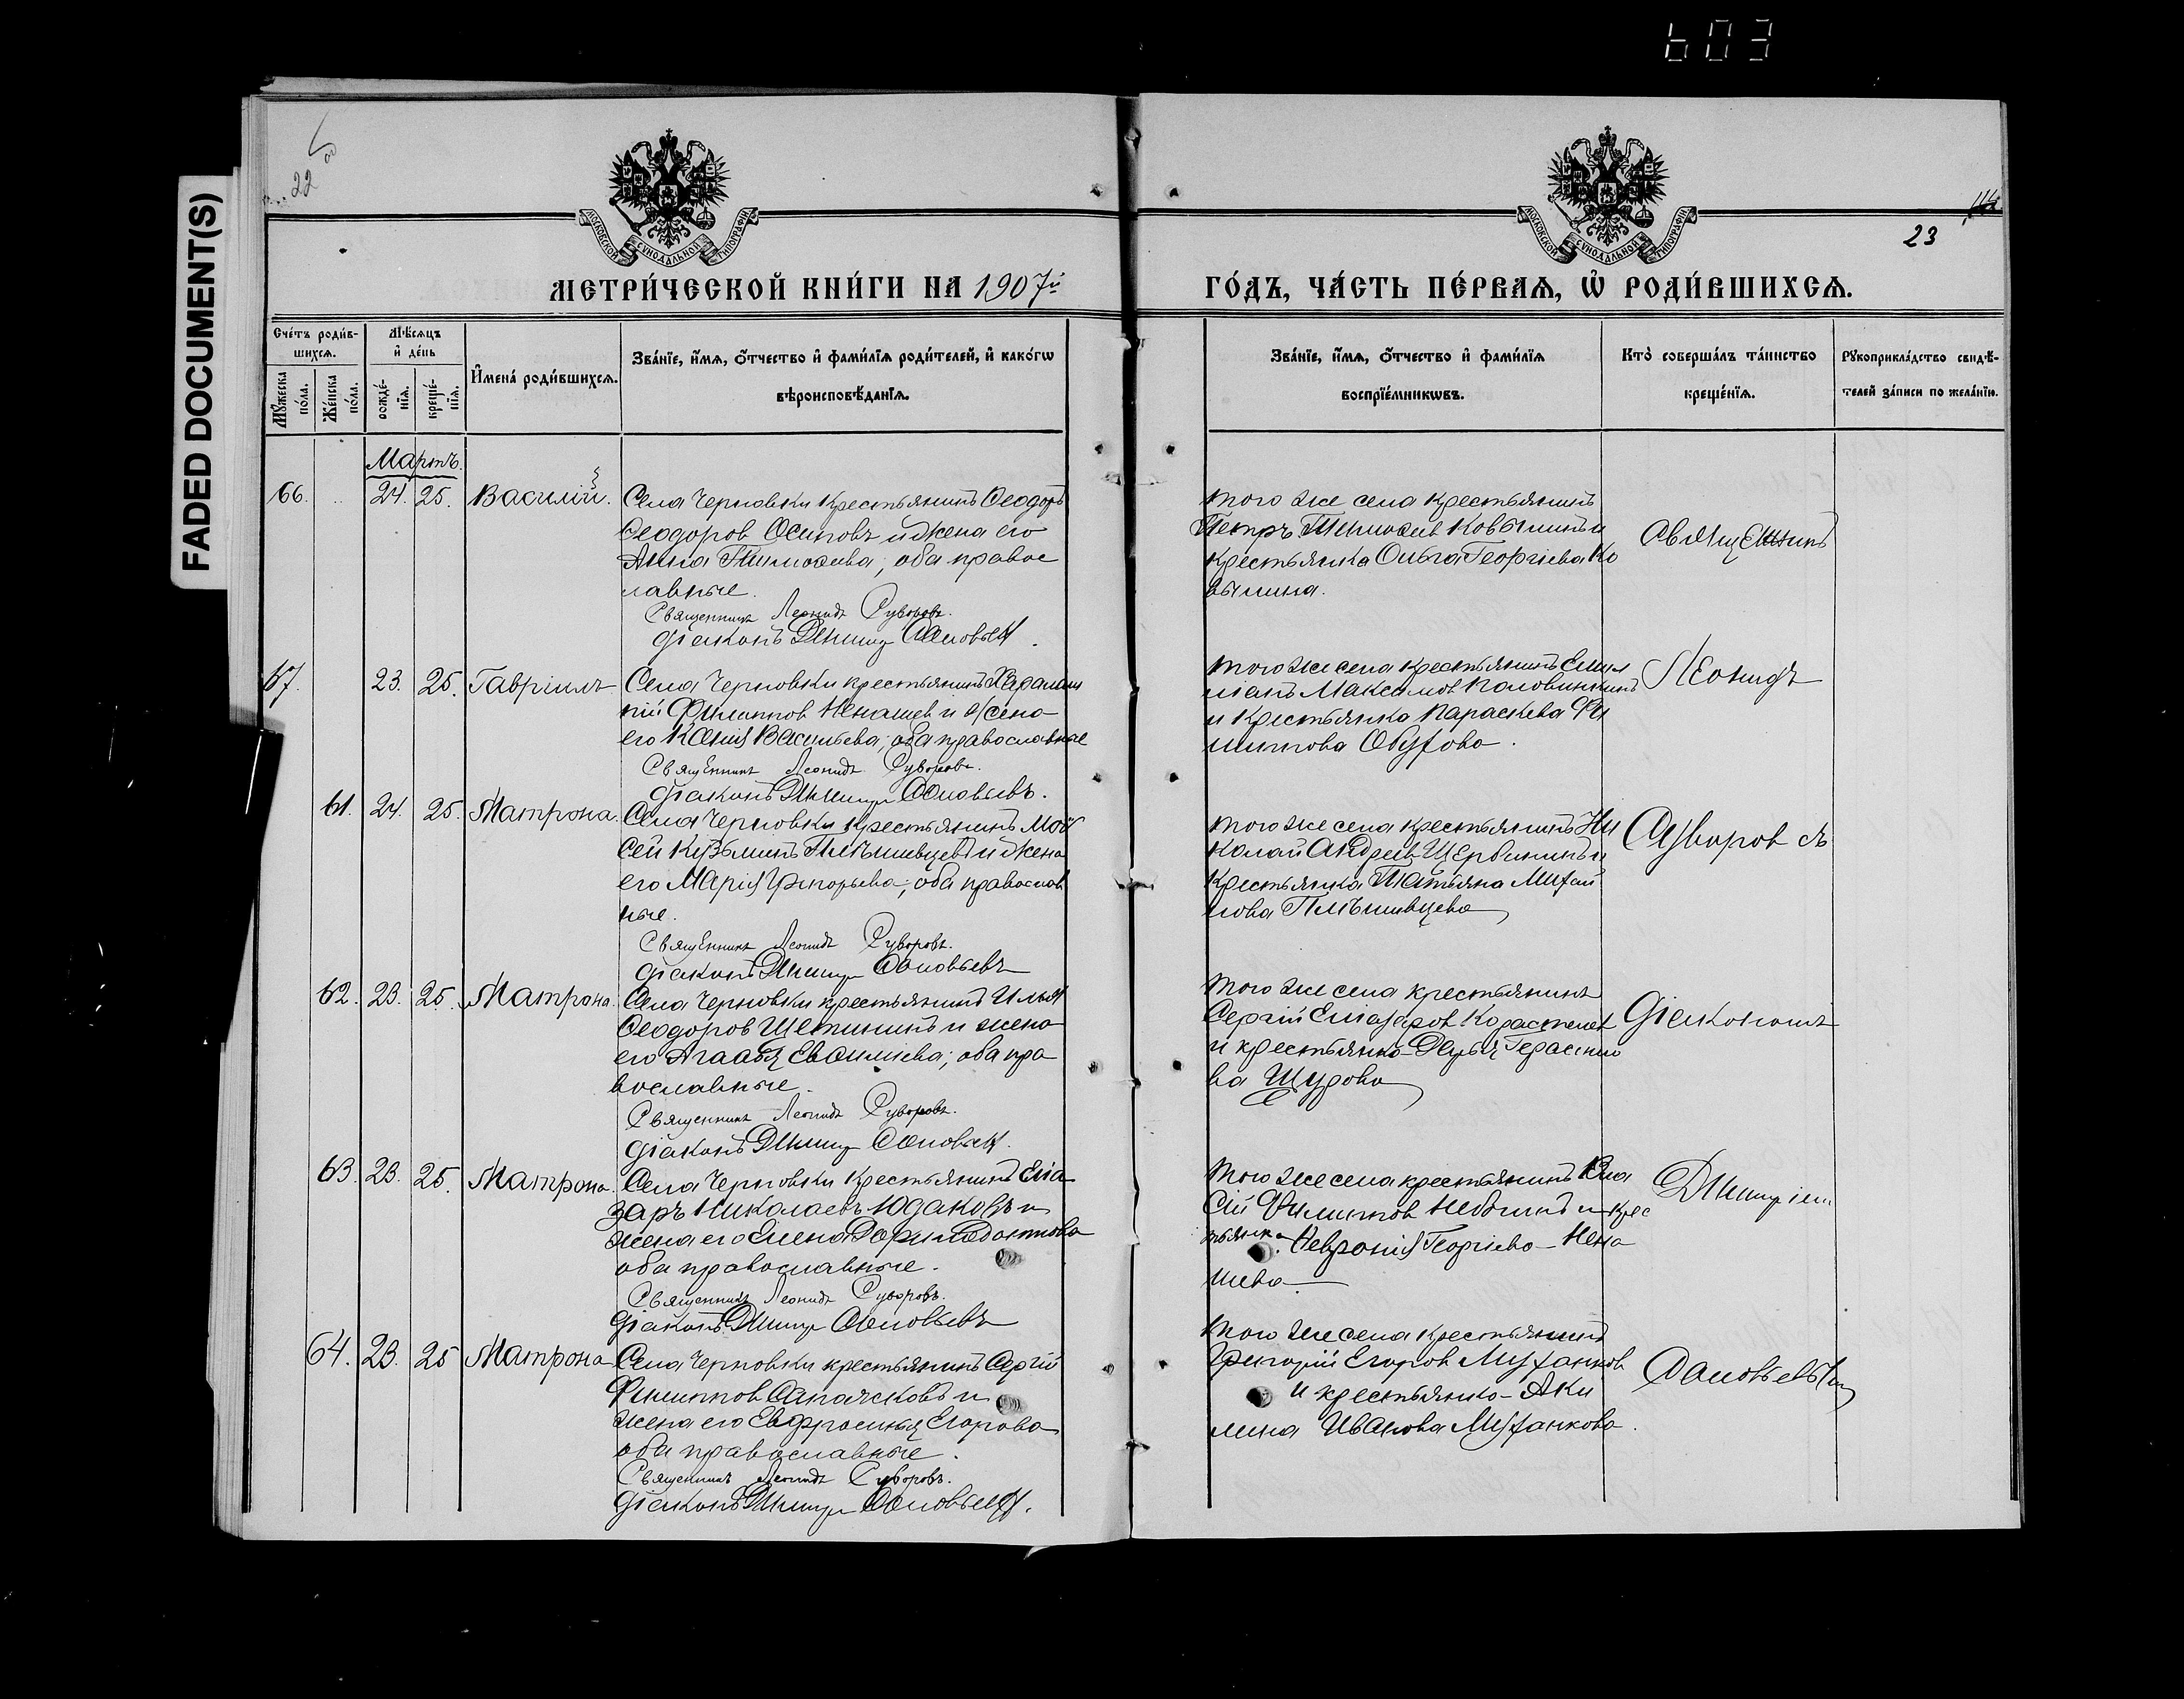 603
FADED DOCUMENT(S)
22
МОСКОВСКОЙ СѴНОДАЛЬНОЙ ТИПОГРАФІИ
МОСКОВСКОЙ СѴНОДАЛЬНОЙ ТИПОГРАФІИ
23
МЕТРИ́ЧЕСКОЙ КНИ́ГИ НА 1907й
ГО́ДЪ, ЧА́СТЬ ПЕ́РВАѦ, Ѡ҆ РОДИ́ВШИХСѦ.
Сче́тъ роди́в-
шихсѧ.
Мꙋ́жеска
по́ла.
Же́нска
по́ла.
Мѣ́сѧцъ
и҆ де́нь
рожде́-
нїѧ.
креще́-
нїѧ.
И҆мена̀ роди́вшихсѧ.
Зва́нїе, и҆́мѧ, ѻ҆́тчество и҆ фами́лїѧ роди́телей, и҆ како́гѡ
вѣроисповѣ́данїѧ.
Зва́нїе, и҆́мѧ, ѻ҆́тчество и҆ фами́лїѧ
воспрїе́мникѡвъ.
Кто̀ соверша́лъ та́инство
креще́нїѧ.
Рꙋкоприкла́дство свидѣ́-
телей за́писи по жела́нїю.
Мартъ.
66. 24. 25. Василій.
Села Черновки крестьянинъ Ѳеодоръ
Ѳеодоров Осиповъ и жена его
Анна Тимоѳеева; оба правос
лавные.
Священникъ Леонидъ Суворовъ.
Діаконъ Димитр Соловьев.
того же села крестьянинъ
Петръ Тимоѳеев Ковылинъ и
крестьянка Ольга Георгіева Ко
вылина.
Священникъ
67. 23. 25. Гавріилъ
Села Черновки крестьянинъ Харалам
пій Филиппов Ненашев и жена
его Ксенія Васильева; оба православные
Священникъ Леонидъ Суворовъ.
Діаконъ Димитр Соловьевъ.
того же села крестьянинъ Емил
ианъ Максимов Половинкинъ
и крестьянка Параскева Фи
липпова Обухова.
Леонидъ
61. 24. 25. Матрона.
Села Черновки крестьянинъ Мои
сей Кузьминъ Плѣшивцев и жена
его Марія Григорьева; оба православ
ные.
Священникъ Леонидъ Суворовъ.
Діаконъ Димитр Соловьевъ
того же села крестьянинъ Ни
колай Андреев Щербининъ и
крестьянка Татьяна Михай
лова Плѣшивцева
Суворов съ
62. 23. 25. Матрона.
Села Черновки крестьянинъ Илья
Ѳеодоров Щетининъ и жена
его Агаѳія Евѳиміева; оба пра
вославные.
Священникъ Леонидъ Суворовъ.
Діаконъ Димитр Соловьев.
того же села крестьянинъ
Сергій Елиазаров Коростелев
и крестьянка Дарья Герасимо
ва Щурова
Діакономъ
63. 23. 25. Матрона.
Села Черновки крестьянинъ Елиа
заръ Николаевъ Юдаковъ и
жена его Елена
оба православные.
Священникъ Леонидъ Суворовъ.
Діаконъ Димитр Соловьевъ
того же села крестьянинъ Вла
сій Филиппов и крес
тьянка Феврония Георгіева Нена
шева
Димитріем
64. 23. 25 Матрона
Села Черновки крестьянинъ Сергій
Филиппов и
жена его Евфросинья Егорова
оба православные.
Священникъ Леонидъ Суворовъ.
Діаконъ Димитр Соловьев.
того же села крестьянинъ
Григорій Егоров Муханков
и крестьянка Аки
лина Иванова Муханкова.
Соловьевым